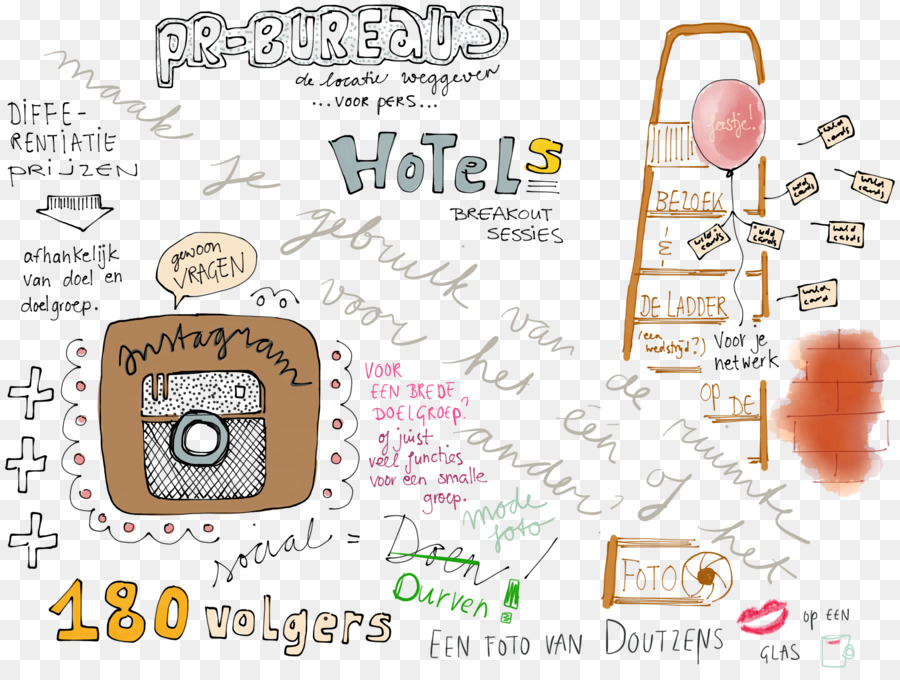 PR-BUREAUS
de locatie weggeven
...VOOR PERS...
maak
je
gebruik van de ruimte
voor het één of het
ander,
DIFFE-
RENTIATIE
PRIJZEN
afhankelijk
van doel en
doelgroep.
HOTELS
BREAKOUT
SESSIES
gewoon
VRAGEN
Instagram
VOOR
EEN BREDE
DOELGROEP?
of juist
veel functies
voor een smalle
groep.
feestje!
BEZOEK
&
DE LADDER
(een
wedstrijd?)
Voor je
netwerk
OP DE
wild
cards
wild
cards
wild
cards
wild
cards
wild
cards
wild
cards
wild
card
social =
Doen!
Durven!
mode
foto
180 volgers
FOTO
EEN FOTO VAN DOUTZENS
OP EEN
GLAS